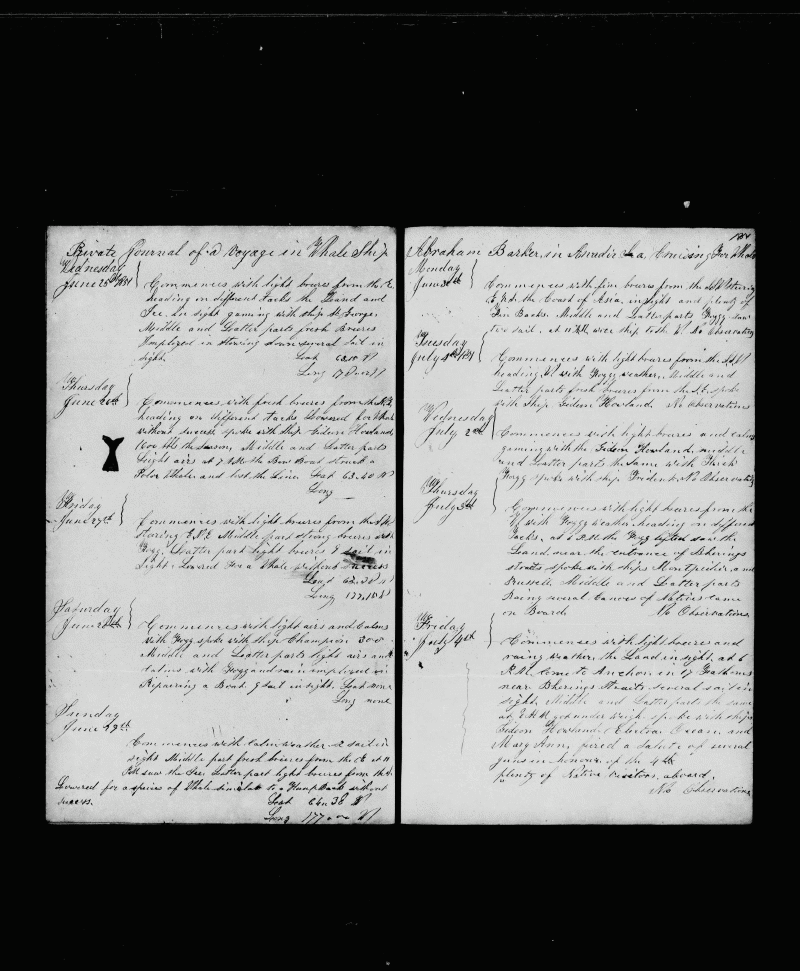 Private Journal of a Voyage in Whale Ship
Wednesday
June 25th 1851
Commences with light breezes from the E.
heading on different tacks the Land and
Ice, in sight gaming with ship St George
Middle and Latter parts fresh Breezes
Employed in stowing down several sail in
sight.
Lat 63.10 N
Long
Thursday
June 26th
Commences with fresh breezes from the
heading on different tacks Lowered for Whale
without success spoke with ship Gideon Howland
1600 bbls the season, Middle and Latter parts
Light airs at 7 A.M. the Bow Boat struck a
Polar Whale and lost the Line. Lat 63.40 N
Long
Friday
June 27th
Commences with light breezes from the
Steering E.N.E. Middle part strong breezes with
Fogg. Latter part light breezes 9 sail in
Sight, Lowered For a Whale without success
Lat
Long
Saturday
June 28th
Commences with light airs and Calms
with Fogg spoke with ship Champion 300
Middle and Latter parts light airs and
Calms with Fogg and rain employed in
Repairing a Boat, 9 sail in sight. Lat none
Long none
Sunday
June 29th
Commences with Calm weather 2 sail in
sight Middle part fresh breezes from the at 11
P.M. saw the Ice. Latter part light breezes from the
Lowered for a species of Whale similar to a Humpback without
success.
Lat 64.38 N
Long 177
1851
Abraham Barker, in Anadir Sea, Cruising For Whale
Monday
June 30th
Commences with fine breezes from the steering
the Coast of Asia, in sight and plenty of
Fin Backs. Middle and Latter parts Foggy saw
two sail. at 11 A.M. wore ship to the No Observations
Tuesday
July 1st 1851
Commences with light breezes from the
heading with Foggy weather. Middle and
Latter parts fresh breezes from the spoke
with Ship Gideon Howland. No Observations
Wednesday
July 2nd
Commences with light breezes and calms
gaming with the Gideon Howland, middle
and Latter parts the same with Thick
Fogg spoke with ship No Observations
Thursday
July 3rd
Commences with light breezes from the
with Foggy weather heading on different
Tacks, at 6 P.M. the Fogg lifted saw the
Land near the entrance of Beherings
straits spoke with ships Montpelier, and
Brussell Middle and Latter parts
Being several Canoes of Natives came
on Board. No Observations
Friday
July 4th
Commences with light breezes and
rainy weather, the Land in sight, at 6
P.M. Come to Anchor in 17 Fathoms
near Bherings Straits several sail in
sight, Middle and Latter parts the same
at got under weigh sp. be with ships
Gideon Howland, Electra Ocean, and
Mary Ann, fired a salute of several
guns in honour of the 4th
plenty of Native visitors aboard.
No Observations